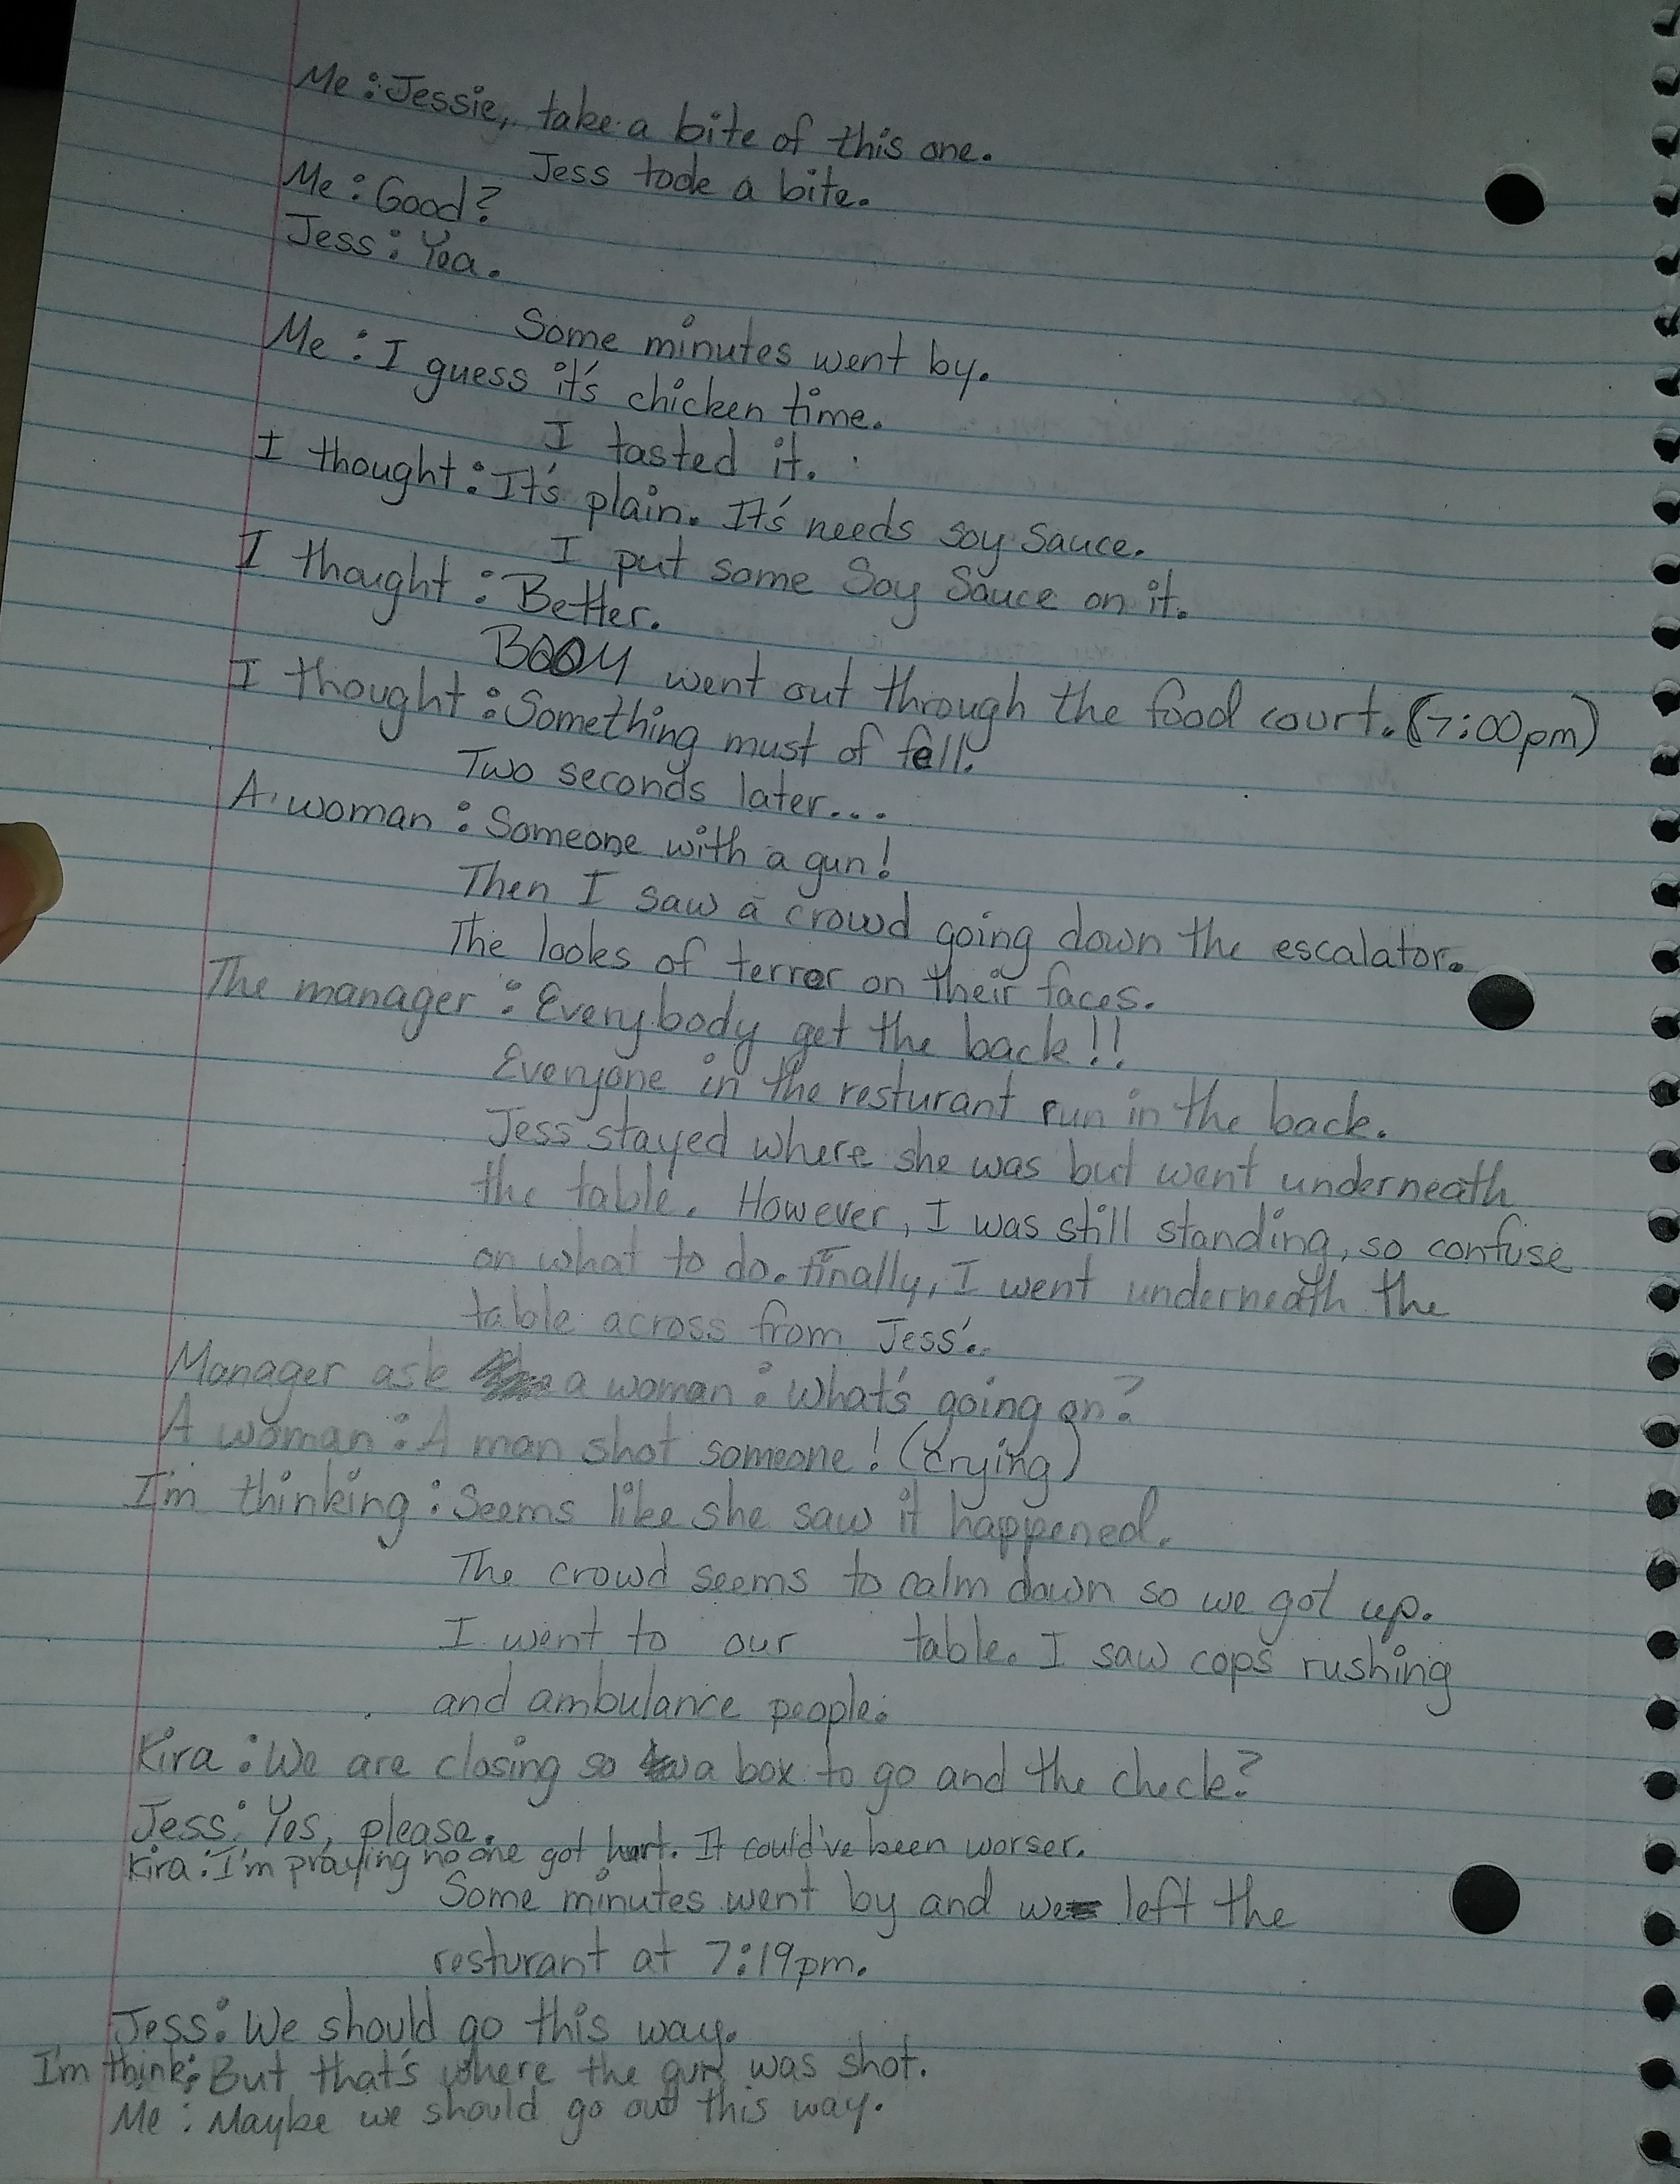 Me: Jessie, take a bite of this one.
Jess took a bite.
Me: Good?
Jess: Yea.
Some minutes went by.
Me: I guess it's chicken time.
I tasted it.
I thought: It's plain. It's needs soy sauce.
I put some Soy Sauce on it.
I thought: Better.
BOOM went out through the food court. (7:00pm)
I thought: Something must of fell.
Two seconds later...
A woman: Someone with a gun!
Then I saw a crowd going down the escalator.
The looks of terror on their faces.
The manager: Everybody get the back!!
Everyone in the resturant run in the back.
Jess stayed where she was but went underneath
the table. However, I was still standing, so confuse
on what to do. Finally, I went underneath the
table across from Jess'.
Manager ask a woman: What's going on?
A woman: A man shot someone! (crying)
I'm thinking: Seems like she saw it happened.
The crowd seems to calm down so we got up.
I went to our table. I saw cops rushing
and ambulance people.
Kira: We are closing so a box to go and the check?
Jess: Yes, please.
Kira: I'm praying no one got hurt. It could've been worser.
Some minutes went by and we left the
resturant at 7:19pm.
Jess: We should go this way.
I'm think: But that's where the gun was shot.
Me: Maybe we should go out this way.